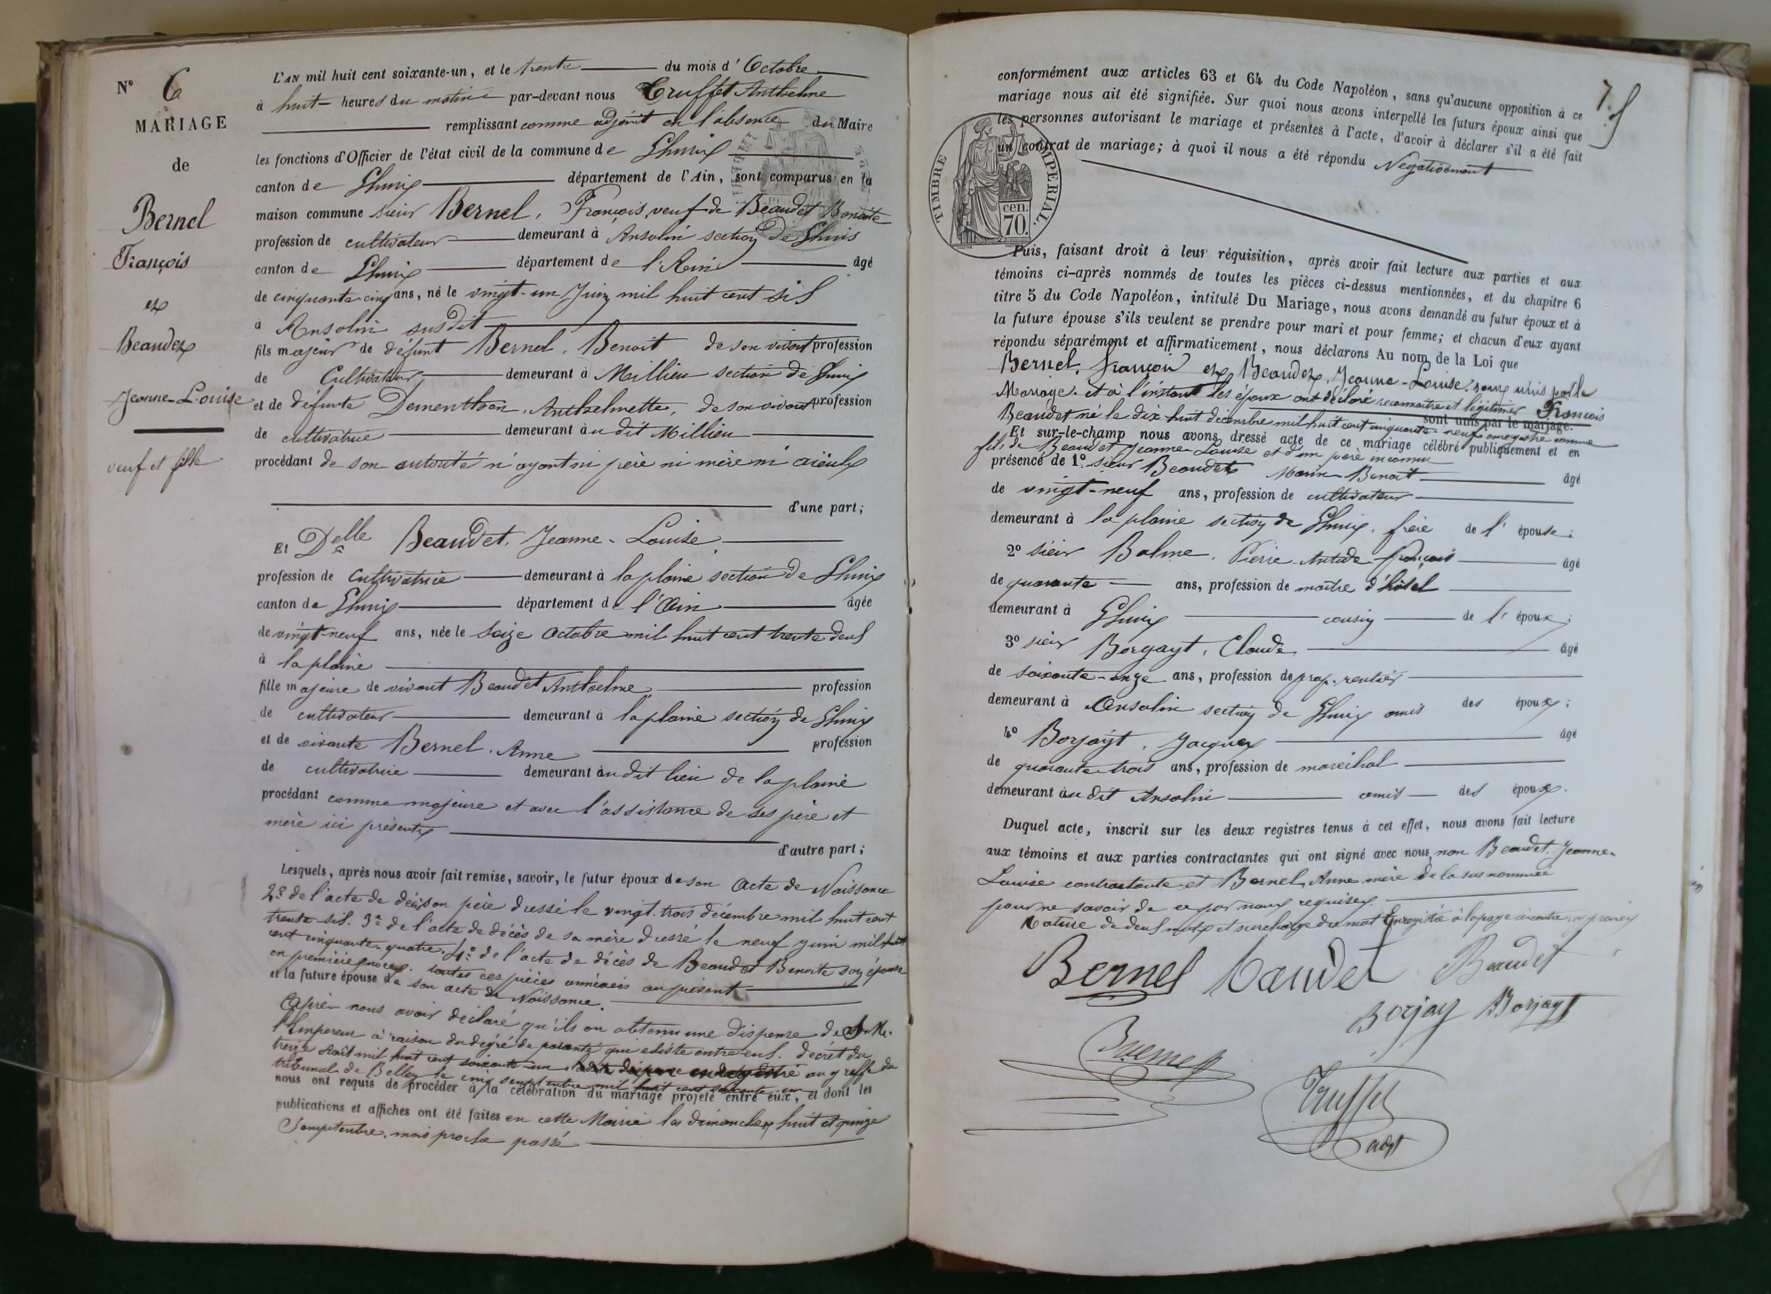 N° 6
MARIAGE
de
Bernel
François
et
Beaudet
Jeanne-Louise
veuf et fille
L'AN mil huit cent soixante-un, et le trente du mois d'Octobre
à huit heures du matin par-devant nous Truffet Anthelme
remplissant comme adjoint en l'absence du Maire
les fonctions d'Officier de l'état civil de la commune de Lhuis
canton de Lhuis département de l'Ain, sont comparus en la
maison commune sieur Bernel, François, veuf de Beaudet Benoite
profession de cultivateur demeurant à Ansolin section de Lhuis
canton de Lhuis département de l'Ain âgé
de cinquante cinq ans, né le vingt-un Juin mil huit cent six
à Ansolin susdit
fils majeur de défunt Bernel, Benoit de son vivant profession
de Cultivateur demeurant à Millieu section de Lhuis
et de défunte Dementhon, Anthelmette, de son vivant profession
de cultivatrice demeurant au dit Millieu
procédant de son autorité n'ayant ni père ni mère ni aïeuls
d'une part;
Et Delle Beaudet, Jeanne-Louise
profession de Cultivatrice demeurant à la plaine section de Lhuis
canton de Lhuis département de l'Ain âgée
de vingt-neuf ans, née le seize Octobre mil huit cent trente deux
à la plaine
fille majeure de vivant Beaudet Anthelme profession
de cultivateur demeurant à la plaine section de Lhuis
et de vivante Bernel, Anne profession
de cultivatrice demeurant au dit lieu de la plaine
procédant comme majeure et avec l'assistance de ses père et
mère ici présents
d'autre part;
Lesquels, après nous avoir fait remise, savoir, le futur époux de son acte de Naissance
2° de l'acte de décès son père dressé le vingt-trois décembre mil huit cent
trente-six. 3° de l'acte de décès de sa mère dressé le neuf juin mil huit
cent cinquante-quatre, 4° de l'acte de décès de Beaudet Benoite son épouse
en première noces. toutes ces pièces annexées au présent
et la future épouse de son acte de Naissance.
Après nous avoir déclaré qu'ils on obtenu une dispense de S. M.
l'Empereur à raison du degré de parenté qui existe entre eux. décret du
treize Août mil huit cent soixante un enregistré au greffe du
tribunal de Belley le cinq septembre mil huit cent soixante un
nous ont requis de procéder à la célébration du mariage projeté entre eux, et dont les
publications et affiches ont été faites en cette Mairie les dimanches huit et quinze
Semptembre, mois proche passé
7.
conformément aux articles 63 et 64 du Code Napoléon, sans qu'aucune opposition à ce
mariage nous ait été signifiée. Sur quoi nous avons interpellé les futurs époux ainsi que
les personnes autorisant le mariage et présentes à l'acte, d'avoir à déclarer s'il a été fait
un contrat de mariage; à quoi il nous a été répondu Négativement
TIMBRE IMPERIAL.
cen.
70.
Puis, faisant droit à leur réquisition, après avoir fait lecture aux parties et aux
témoins ci-après nommés de toutes les pièces ci-dessus mentionnées, et du chapitre 6
titre 5 du Code Napoléon, intitulé Du Mariage, nous avons demandé au futur époux et à
la future épouse s'ils veulent se prendre pour mari et pour femme; et chacun d'eux ayant
répondu séparément et affirmativement, nous déclarons Au nom de la Loi que
Bernel, François et Beaudet, Jeanne-Louise, sont unis par le
Mariage. et à l'instant les époux ont déclaré reconnaitre et légitimer François
sont unis par le mariage.
Beaudet né le dix huit décembre mil huit cent cinquante-neuf enregistré comme
Et sur-le-champ nous avons dressé acte de ce mariage célébré publiquement et en
fils de Beaudet Jeanne Louise et d'un père inconnu
présence de 1° sieur Beaudet Marin Benoit âgé
de vingt-neuf ans, profession de cultivateur
demeurant à la plaine section de Lhuis, frère de l'épouse;
2° sieur Balme, Pierre Antide François âgé
de quarante ans, profession de maître d'hôtel
demeurant à Lhuis cousin de l'époux;
3° sieur Borjayt, Claude âgé
de soixante-onze ans, profession de prop. rentier
demeurant à Ansolin section de Lhuis amis des époux;
4° Borjayt, Jacques âgé
de quarante trois ans, profession de maréchal
demeurant au dit Ansolin amis des époux.
Duquel acte, inscrit sur les deux registres tenus à cet effet, nous avons fait lecture
aux témoins et aux parties contractantes qui ont signé avec nous, non Beaudet, Jeanne-
Louise contractante et Bernel, Anne mère de la sus nommée
pour ne savoir de ce par nous requises
Rature de deux mots et surcharge du mot Enregistré à la page
Bernel Baudet Beaudet
Borjay Borjayt
Truffet
adjt